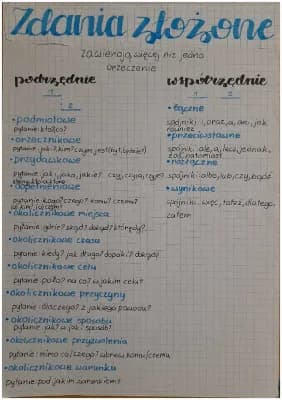 Zdania złożone
zawierają więcej niż jedno
orzeczenie
podrzędnie
1
2
• podmiotowe
pytanie: kto?co?
• orzecznikowe
pytanie: jaki? kim? czym jest (był, będzie)?
• przydawkowe
pytanie: jaki, jaka, jakie? czyj, czyja, czyje?
• dopełnieniowe
pytanie: kogo? czego? komu? czemu?
• okolicznikowe miejsca
pytanie: gdzie? skąd? dokąd? którędy?
• okolicznikowe czasu
pytanie: kiedy? jak długo? dopóki? dokąd?
• okolicznikowe celu
pytanie: po co? na co? w jakim celu?
• okolicznikowe przyczyny
pytanie: dlaczego? z jakiego powodu?
• okolicznikowe sposobu
pytanie: jak? w jaki sposób?
• okolicznikowe przyzwolenia
pytanie: mimo co/czego? wbrew komu/czemu
• okolicznikowe warunku
pytanie: pod jakim warunkiem?
współrzędnie
1 2
• łączne
spójniki: i, oraz, a, ani, jak
również
• przeciwstawne
spójniki: ale, a, lecz, jednak,
zaś, natomiast
• rozłączne
spójniki: albo, lub, czy, bądź
• wynikowe
spójniki: więc, toteż, dlatego,
zatem